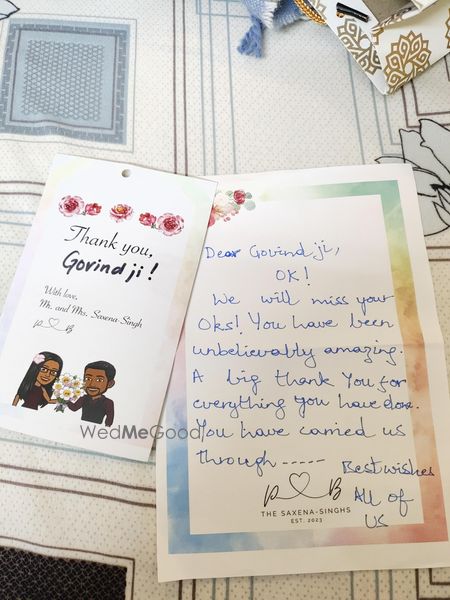 Thank you,
Govind ji!
With love,
Mr. and Mrs. Saxena-Singh
P B
Dear Govind ji,
OK!
We will miss your
Oks! You have been
unbelievably amazing.
A big thank You for
everything you have done.
You have carried us
through -----
Best wishes
All of
us
P B
THE SAXENA-SINGHS
EST. 2023
WedMeGood